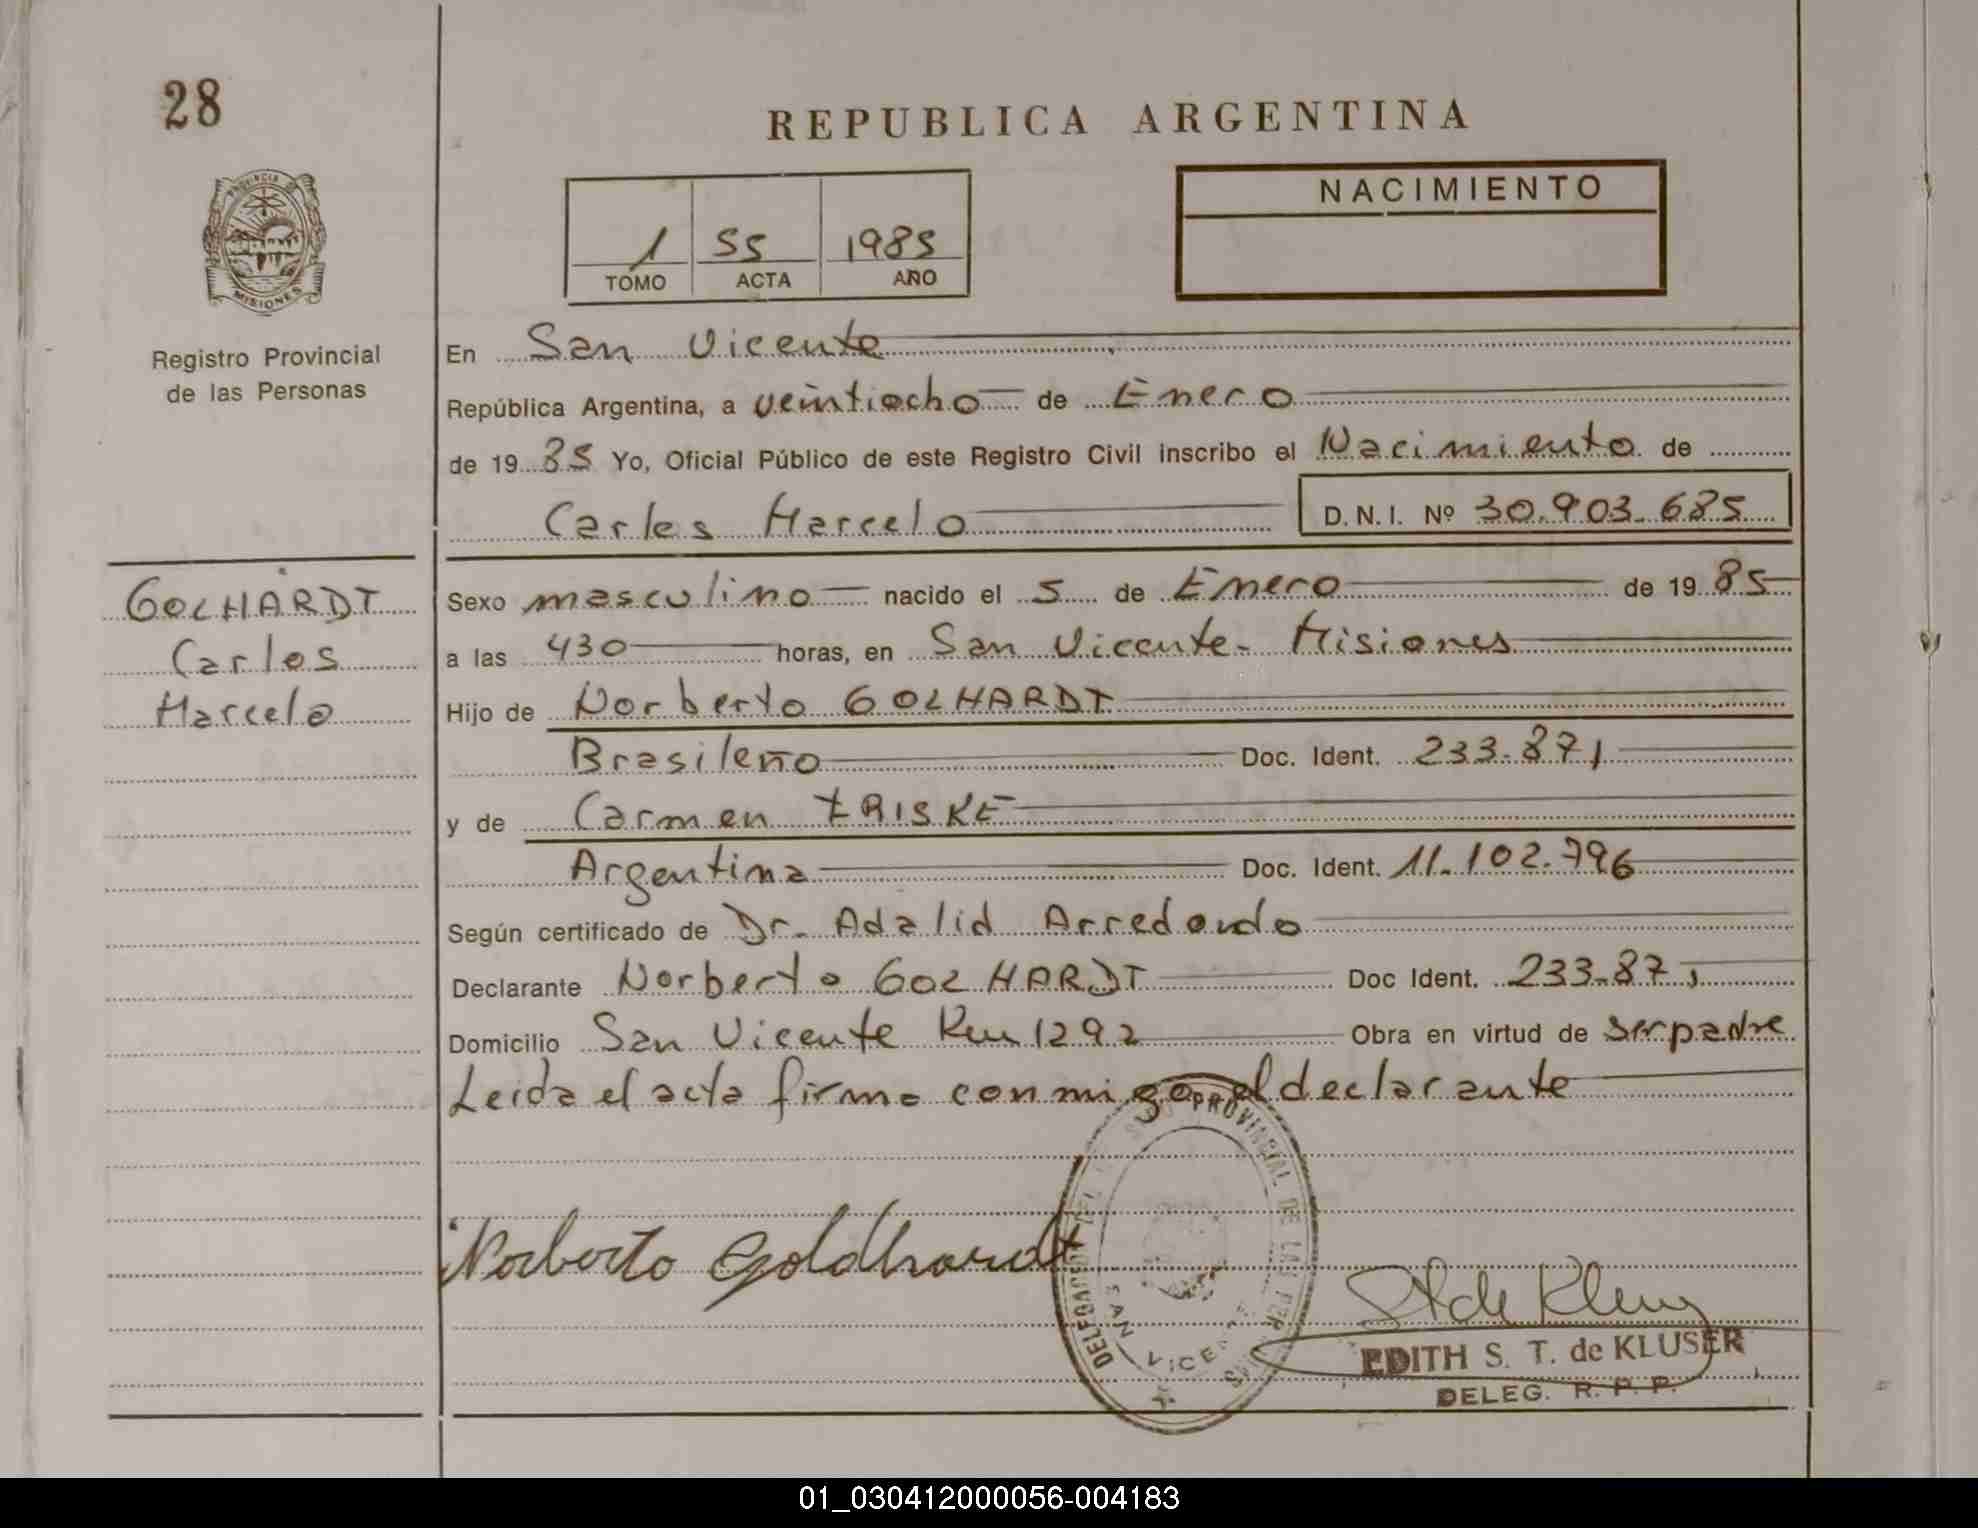 28
REPUBLICA ARGENTINA
PROVINCIA DE
MISIONES
Registro Provincial
de las Personas
1 55 1985
TOMO ACTA AÑO
NACIMIENTO
En San Vicente
República Argentina, a veintiocho de Enero
de 19 85 Yo, Oficial Público de este Registro Civil inscribo el Nacimiento de
Carlos Marcelo D.N.I. Nº 30.903.685
GOLHARDT
Carlos
Marcelo
Sexo masculino nacido el 5 de Enero de 19 85
a las 430 horas, en San Vicente - Misiones
Hijo de Norberto GOLHARDT
Brasileño Doc. Ident. 233.871
y de Carmen ERISKE
Argentina Doc. Ident. 11.102.796
Según certificado de Dr. Adalid Arredondo
Declarante Norberto GOLHARDT Doc Ident. 233.871
Domicilio San Vicente Km 1292 Obra en virtud de ser padre
Leida el acta firma conmigo el declarante
Norberto Goldhardt
DELEGACION DEL PROVINCIAL DE LAS PER
SAN VICENTE
de Kluser
EDITH S. T. de KLUSER
DELEG. R. P. P.
01_030412000056-004183